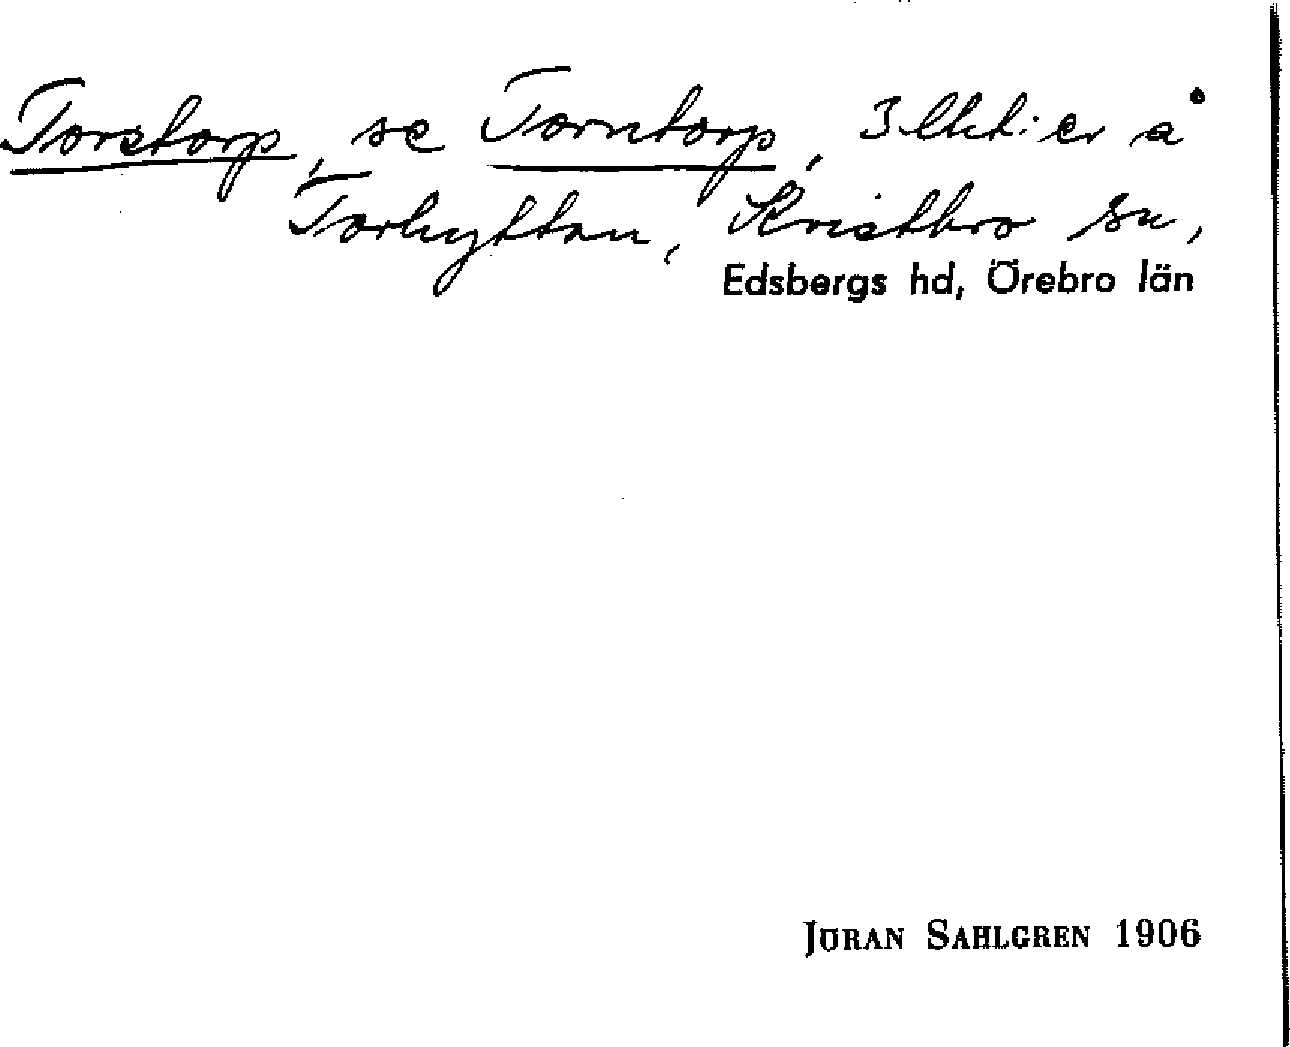 Torstorp, se Torntorp, 3 lht:er å
Torhyttan, Kristbro sn,
Edsbergs hd, Örebro län
JÖRAN SAHLGREN 1906